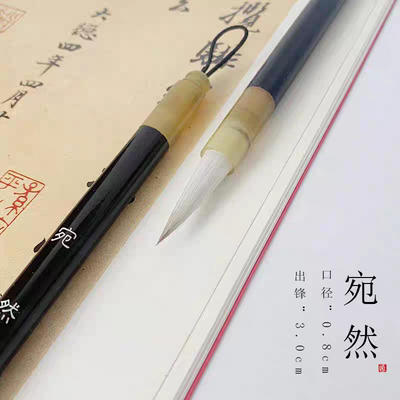 宛然
口径:0.8cm
出锋:3.0cm
大德四年四月十
宛
然